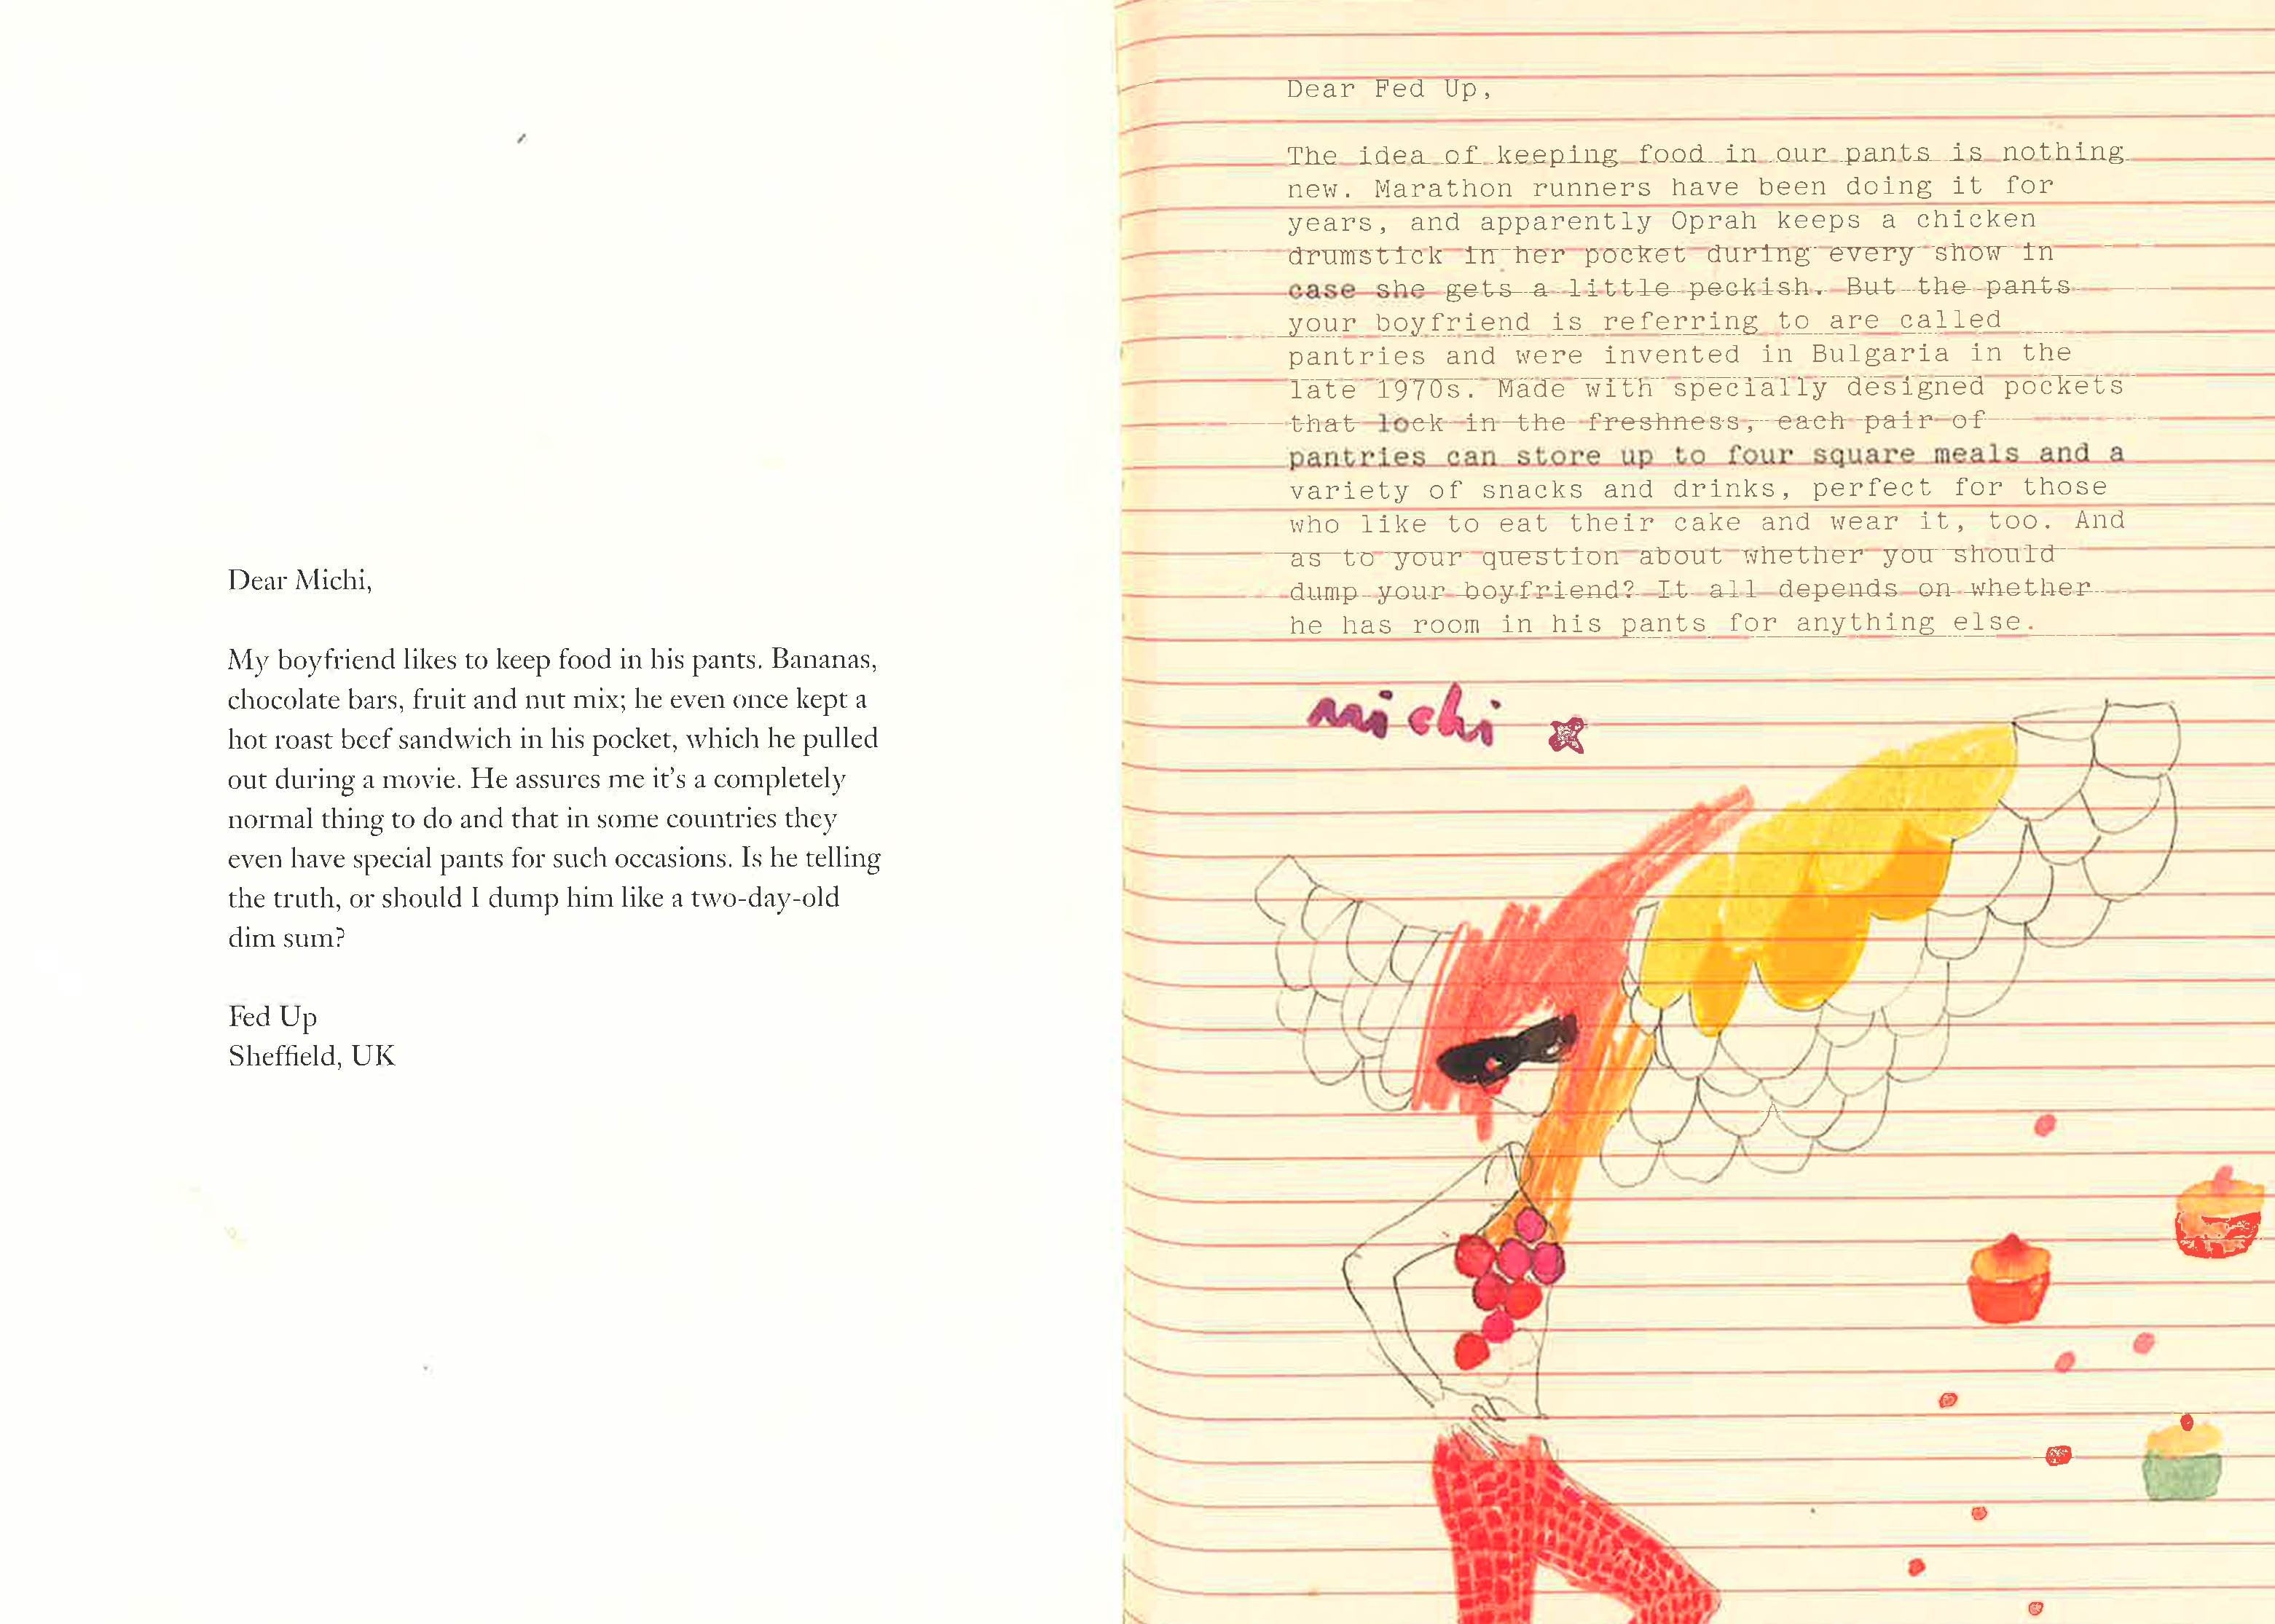 Dear Michi,
My boyfriend likes to keep food in his pants. Bananas,
chocolate bars, fruit and nut mix; he even once kept a
hot roast beef sandwich in his pocket, which he pulled
out during a movie. He assures me it's a completely
normal thing to do and that in some countries they
even have special pants for such occasions. Is he telling
the truth, or should I dump him like a two-day-old
dim sum?
Fed Up
Sheffield, UK
Dear Fed Up,
The idea of keeping food in our pants is nothing
new. Marathon runners have been doing it for
years, and apparently Oprah keeps a chicken
drumstick in her pocket during every show in
case she gets a little peckish. But the pants
your boyfriend is referring to are called
pantries and were invented in Bulgaria in the
late 1970s. Made with specially designed pockets
that lock in the freshness, each pair of
pantries can store up to four square meals and a
variety of snacks and drinks, perfect for those
who like to eat their cake and wear it, too. And
as to your question about whether you should
dump your boyfriend? It all depends on whether
he has room in his pants for anything else.
michi